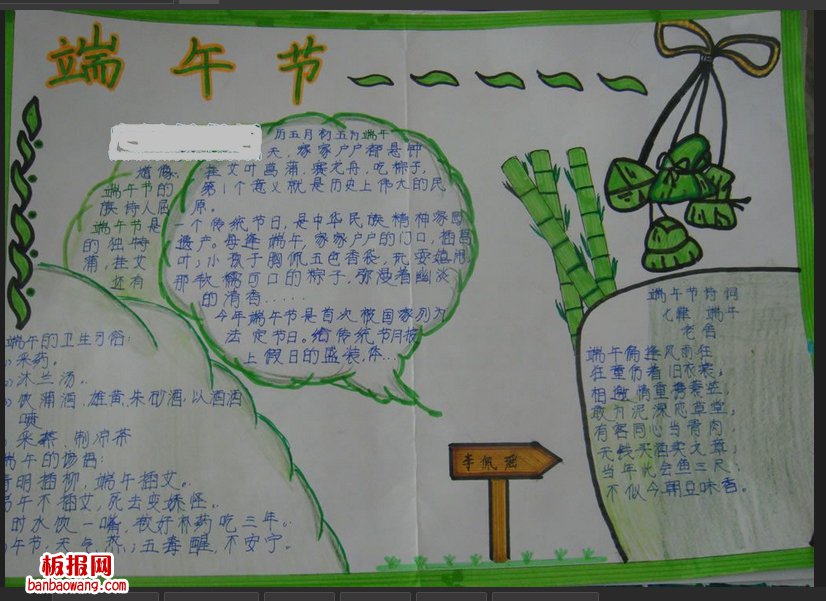 端午节
历五月初五为端午
天，家家户户都悬钟
馗像，挂艾叶菖蒲，赛龙舟，吃粽子，
端午节的 第1个意义就是历史上伟大的民
族诗人屈原。
端午节是一个传统节日，是中华民族精神家园
的独特遗产。每逢端午，家家户户的门口，插菖
蒲，挂艾叶；小孩子胸佩五色香袋，玩耍嬉闹
还有那软糯可口的粽子，弥漫着幽淡
的清香……
今年端午节是首次被国家列为
法定节日。给传统节日披
上假日的盛装，体…
端午的卫生习俗：
采药。
沐兰汤。
饮蒲酒，雄黄，朱砂酒，以酒洒
喷
采茶、制凉茶
端午的谚语：
清明插柳，端午插艾。
端午不插艾，死去变妖怪。
时水饮一嘴，较好补药吃三年。
午节，天气热；五毒醒，不安宁。
李佩瑶
端午节诗词
七律 端午
老舍
端午偏逢风雨狂
村童仍着旧衣裳；
相邀情重携蓑笠，
敢为泥深恋草堂；
有客同心当骨肉，
无钱买酒卖文章；
当年此会鱼三尺；
不似今朝豆味香。
板报网
banbaowang.com